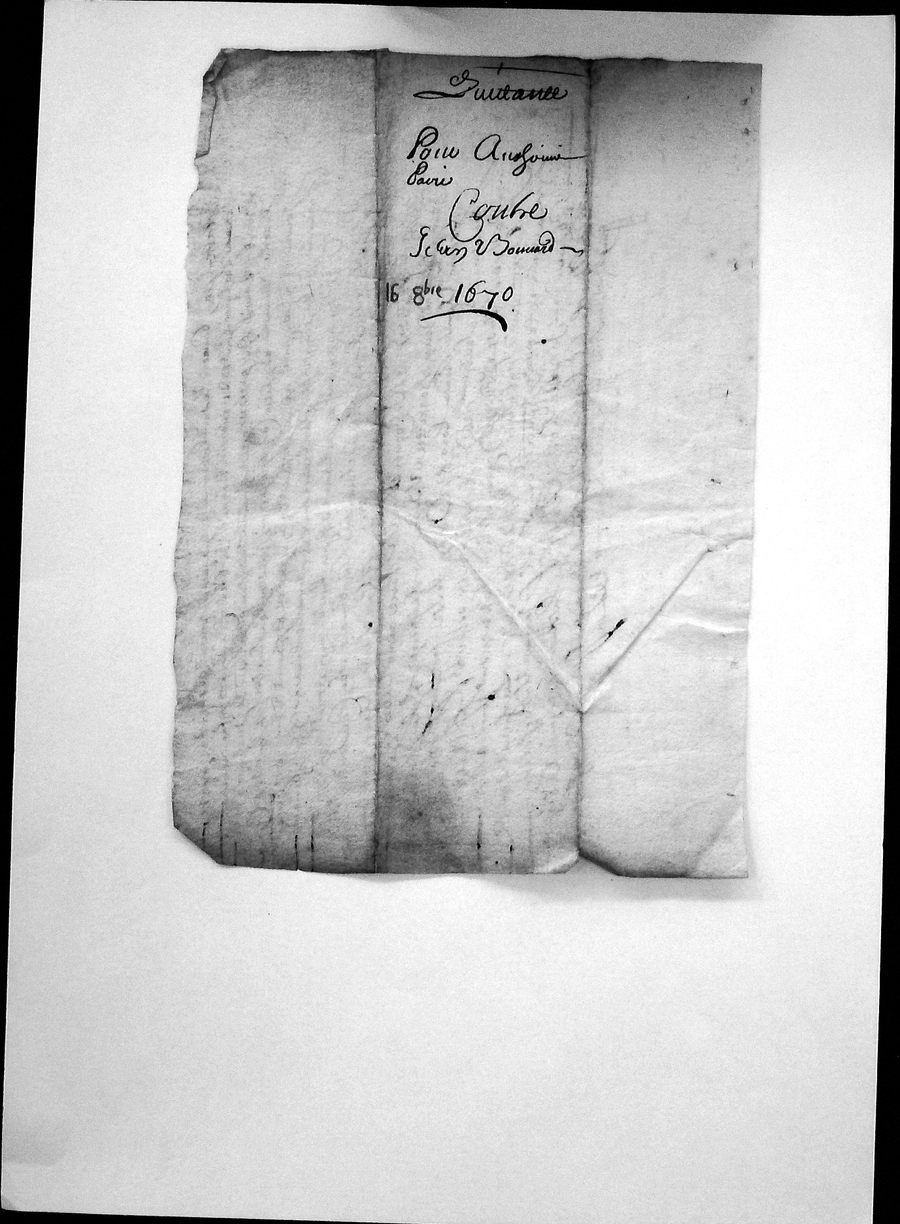 Quittance
Pour Anthoine
Pavie
Contre
Jean Bouuard
16 8bre 1670